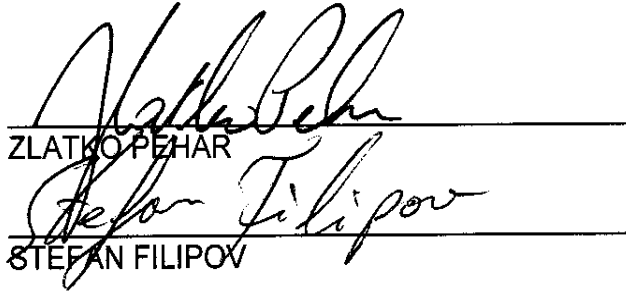 Zlatko Pehar
ZLATKO PEHAR
Stefan Filipov
STEFAN FILIPOV